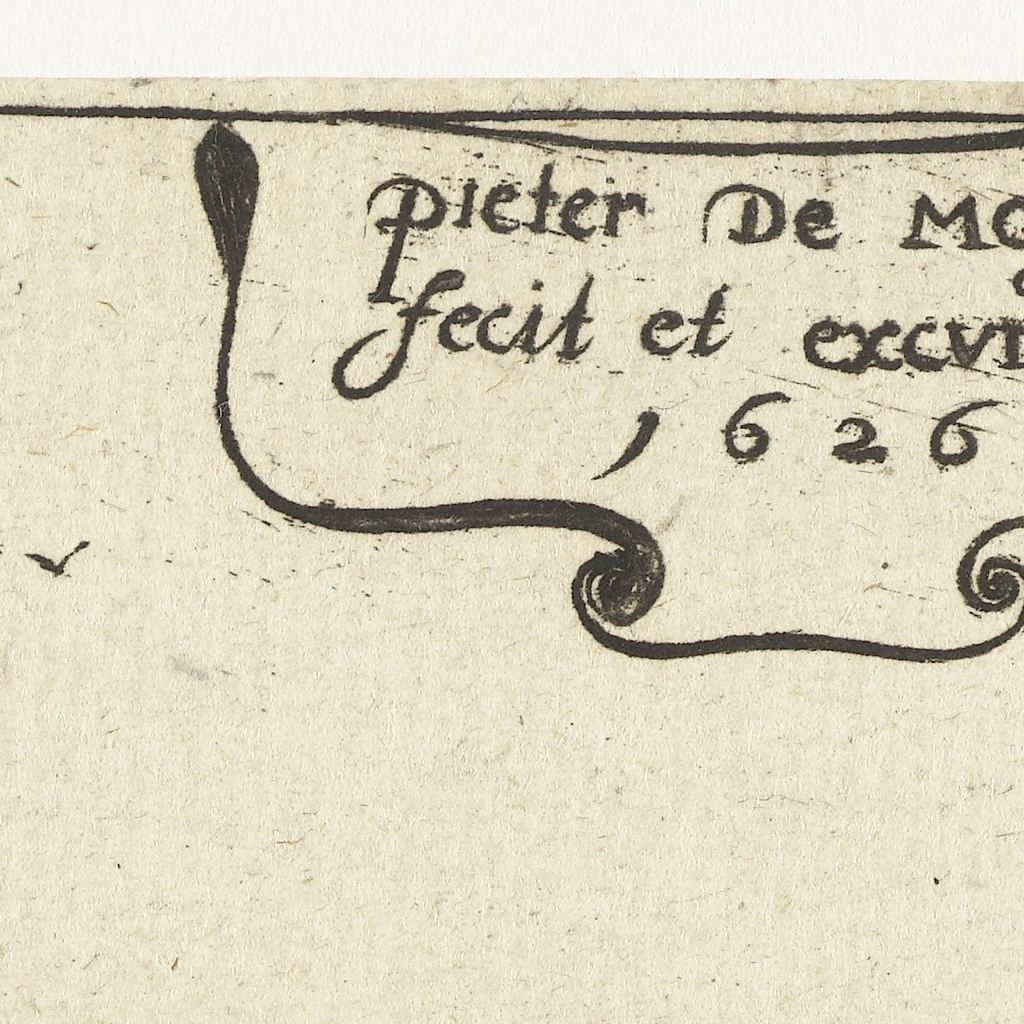 pieter De Mo
fecit et excvr
1626